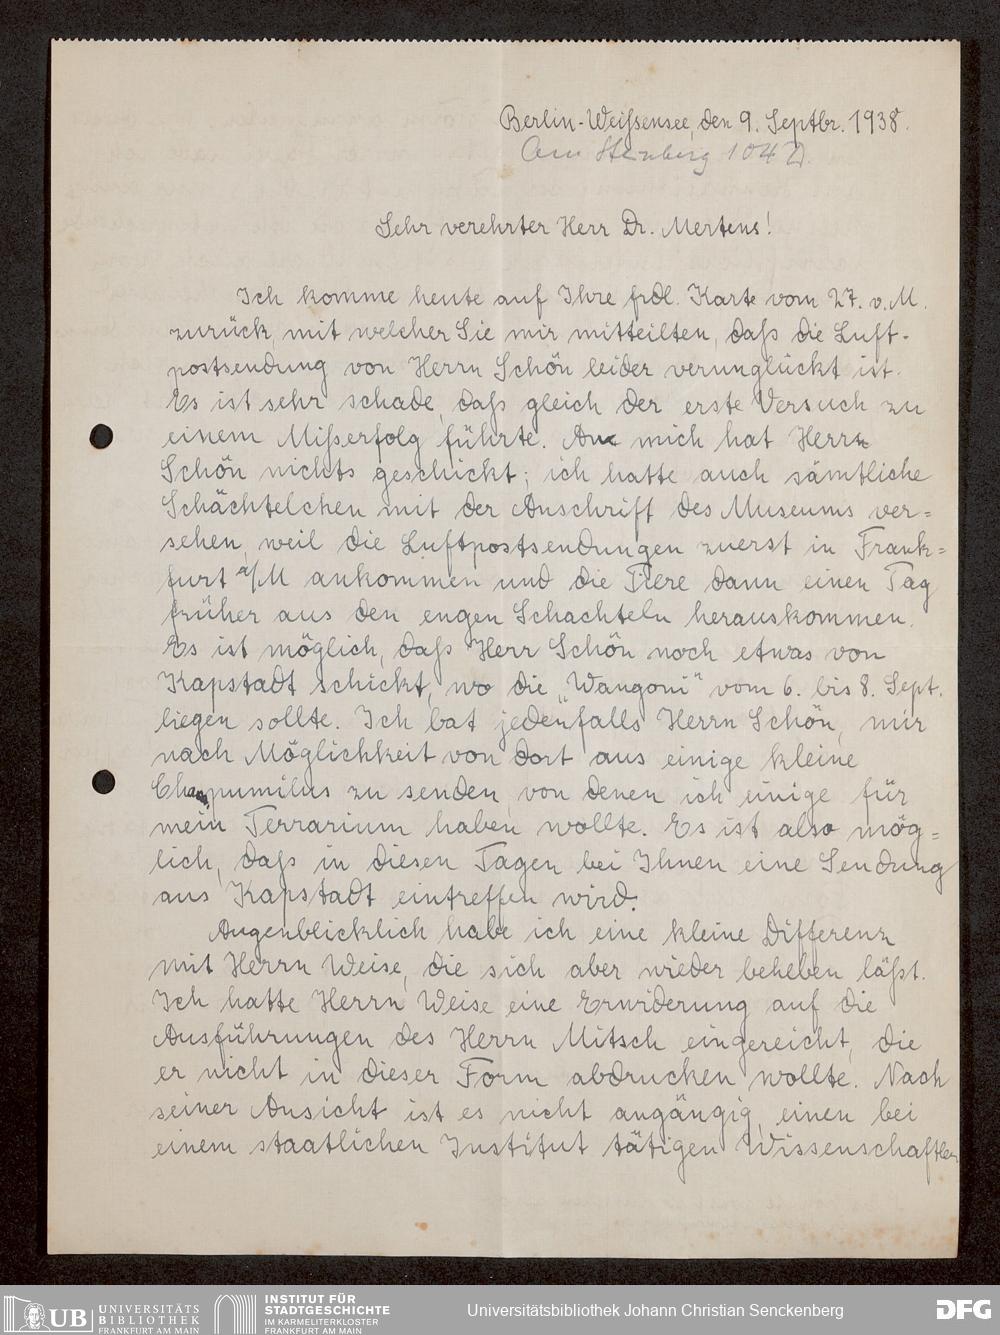 Berlin-Weißensee, den 9. Septbr. 1938.
Am Steinberg 104 D.
Sehr verehrter Herr Dr. Mertens!
Ich komme heute auf Ihre frdl. Karte vom 27. v. M.
zurück, mit welcher Sie mir mitteilten, daß die Luft-
postsendung von Herrn Schön leider verunglückt ist.
Es ist sehr schade, daß gleich der erste Versuch zu
einem Mißerfolg führte. An mich hat Herrn
Schön nichts geschickt; ich hatte auch sämtliche
Schächtelchen mit der Anschrift des Museums ver=
sehen, weil die Luftpostsendungen zuerst in Frank=
furt a/M ankommen und die Tiere dann einen Tag
früher aus den engen Schachteln herauskommen.
Es ist möglich, daß Herr Schön noch etwas von
Kapstadt schickt, wo die „Wangoni" vom 6. bis 8. Sept.
liegen sollte. Ich bat jedenfalls Herrn Schön, mir
nach Möglichkeit von dort aus einige kleine
Ch. pumilus zu senden, von denen ich einige für
mein Terrarium haben wollte. Es ist also mög=
lich, daß in diesen Tagen bei Ihnen eine Sendung
aus Kapstadt eintreffen wird.
Augenblicklich habe ich eine kleine Differenz
mit Herrn Weise, die sich aber wieder beheben läßt.
Ich hatte Herrn Weise eine Erwiderung auf die
Ausführungen des Herrn Mitsch eingereicht, die
er nicht in dieser Form abdrucken wollte. Nach
seiner Ansicht ist es nicht angängig, einen bei
einem staatlichen Institut tätigen Wissenschaftler
UB UNIVERSITÄTS
BIBLIOTHEK
FRANKFURT AM MAIN
INSTITUT FÜR
STADTGESCHICHTE
IM KARMELITERKLOSTER
FRANKFURT AM MAIN
Universitätsbibliothek Johann Christian Senckenberg
DFG